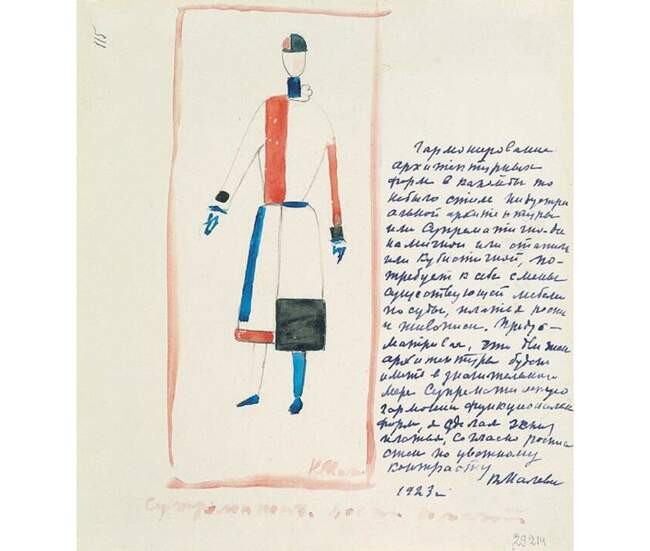 115
Гармонирование
архитектурных
форм в какой бы то
небыло стиле индустри
альной архитектуры
или Супрематично-ди
намичной или статич
или Кубистичной, по-
требует к себе смены
существующей мебели
посуды, платья роспи
и живописи. Преду-
матривая, что движен
архитектуры будет
иметь в значительной
мере Супрематическую
гармонию функциональн
форм, я сделал эскиз
платья, согласно роспис
стен по цветному
контрасту
КМалеви
1923г
К Мал
Супрематич.
29214